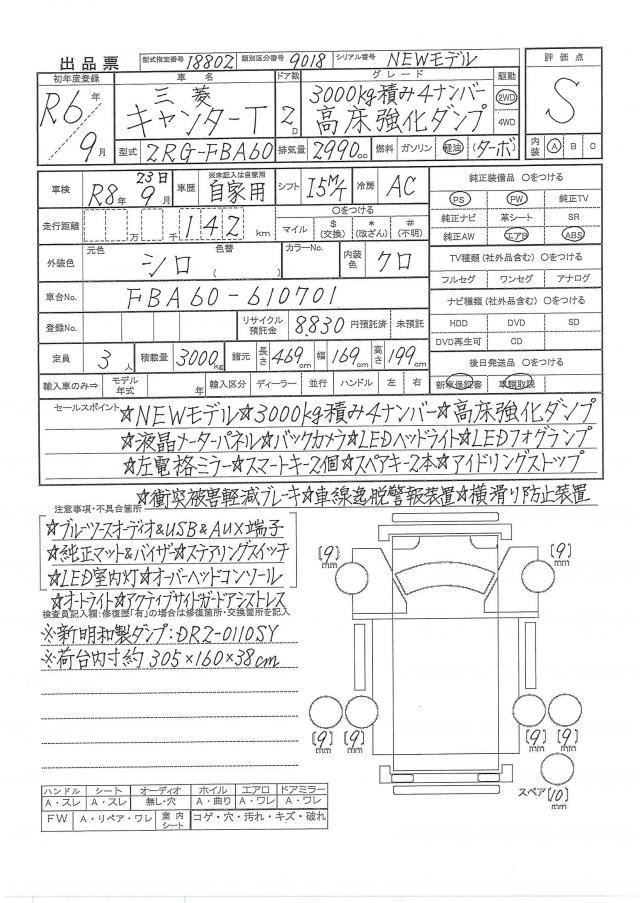 出品票 型式指定番号 18802 類別区分番号 9018 シリアル番号 NEWモデル
初年度登録 車名 ドア数 グレード 駆動 評価点
R6年 三菱 3000kg積み4ナンバー 2WD S
9月 キャンターT 2D 高床強化ダンプ 4WD
型式 2RG-FBA60 排気量 2990cc 燃料 ガソリン 軽油 (ターボ) 内装 A B C
車検 R8年 23日 9月 車歴 ※未記入は自家用 自家用 シフト I5M/T 冷房 AC 純正装備品 〇をつける
PS PW 純正TV
走行距離 万 千 142km 〇をつける マイル $(交換) *(改ざん) #(不明) 純正ナビ 革シート SR
純正AW エアB ABS
外装色 元色 シロ 色替 ( ) カラーNo. 内装色 クロ TV種類(社外品含む) 〇をつける
フルセグ ワンセグ アナログ
車台No. FBA60-610701 ナビ種類(社外品含む) 〇をつける
登録No. リサイクル預託金 8,830円預託済 未預託 HDD DVD SD
DVD再生可 CD
定員 3人 積載量 3000kg 諸元 長さ 469cm 幅 169cm 高さ 199cm 後日発送品 〇をつける
輸入車のみ⇒ モデル年式 年 輸入区分 ディーラー 並行 ハンドル 左 右 新車保証書 車輌取説
セールスポイント ☆NEWモデル☆3000kg積み4ナンバー☆高床強化ダンプ
☆液晶メーターパネル☆バックカメラ☆LEDヘッドライト☆LEDフォグランプ
☆左電格ミラー☆スマートキー2個☆スペアキー2本☆アイドリングストップ
☆衝突被害軽減ブレーキ☆車線逸脱警報装置☆横滑り防止装置
注意事項・不具合箇所
☆ブルーツースオーディオ&USB&AUX端子
☆純正マット&バイザー☆ステアリングスイッチ
☆LED室内灯☆オーバーヘッドコンソール
☆オートライト☆アクティブサイドガードアシストレス
検査員記入欄:修復歴「有」の場合は修復箇所・交換箇所を記入
※新明和製ダンプ:DR2-0110SY
※荷台内寸約305×160×38cm
[9]mm [9]mm
[9]mm [9]mm [9]mm [9]mm
スペア[10]mm
ハンドル シート オーディオ ホイル エアロ ドアミラー
A・スレ A・スレ 無し・穴 A・曲り A・ワレ A・ワレ
FW A・リペア・ワレ 室内シート コゲ・穴・汚れ・キズ・破れ